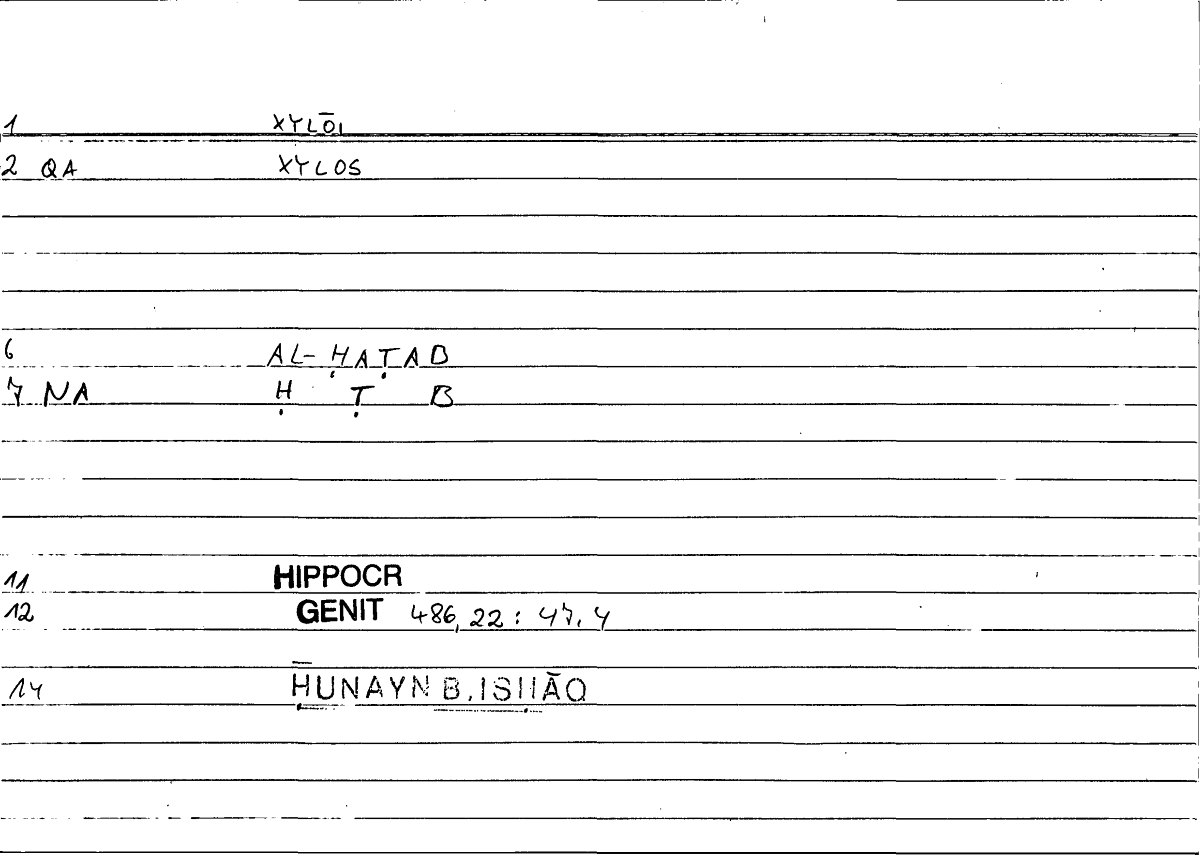 1 XYLŌI
2 QA XYLOS
6 AL-ḤAṬAB
7 NA Ḥ Ṭ B
11 HIPPOCR
12 GENIT 486,22 : 47,4
14 ḤUNAYN B.ISḤĀQ